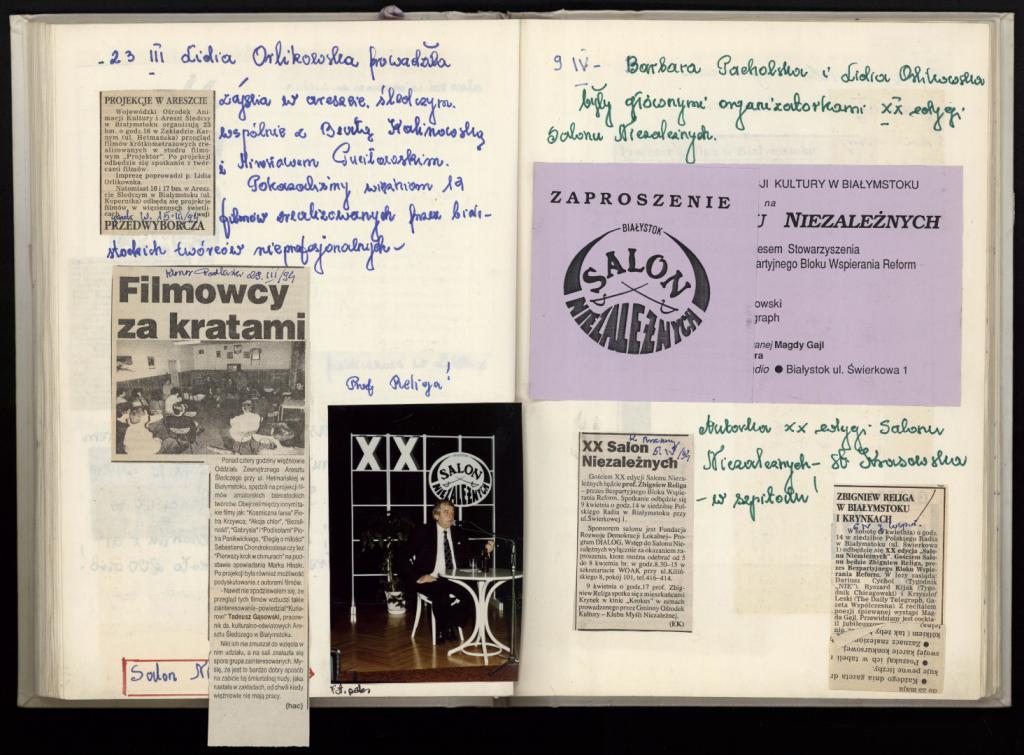 - 23 III Lidia Orlikowska prowadziła
zajęcia w areszcie śledczym.
wspólnie z Beatą Kalinowską
i Mirosławem
Pokazaliśmy więźniom 12
filmów zrealizowanych przez biało-
stockich twórców nieprofesjonalnych -
PROJEKCJE W ARESZCIE
Wojewódzki Ośrodek Ani-
macji Kultury i Areszt Śledczy
w Białymstoku organizują 23
bm. o godz.16 w Zakładzie Kar-
nym (ul. Hetmańska) przegląd
filmów krótkometrazowych zre-
alizowanych w studu filmo-
wym „Projektor". Po projekcji
odbędzie się spotkanie z twór-
cami filmów.
Imprezę poprowadzi p. Lidia
Orlikowska.
Natomiast 16 i 17 bm. w Aresz-
cie Śledczym w Białymstoku (ul.
Kopernika) odbędą się projekcje
filmów, w więziennych świetli-
PRZEDWYBORCZA
Kurier Podlaski 28.III/94
Filmowcy
za kratami
Ponad cztery godziny więźniowie
Oddziału Zewnętrznego Aresztu
Śledczego przy ul. Hetmańskiej w
Białymstoku, spędzili na projekcji fil-
mów amatorskich białostockich
twórców. Obejrzeli między innymi ta-
kie filmy jak: "Kosmiczna farsa" Pio-
tra Krzywca; "Akcja chlor", "Bezsil-
ność", "Gabrysia" i "Podkołami" Pio-
tra Panikwickiego, "Elegię o miłości"
Sebastiana Chondrokostasa czy też
"Pierwszy krok w chmurach" na pod-
stawie opowiadania Marka Hłaski.
Po projekcji była również możliwość
podyskutowania z autorami filmów.
- Nawet nie spodziewałem się, że
przegląd tych filmów wzbudzi takie
zainteresowanie - powiedział "Kurie-
rowi" Tadeusz Gąsowski, pracow-
nik ds. kulturalno-oświatowych Are-
sztu Śledczego w Białymstoku.
Nikt ich nie zmuszał do wzięcia w
nim udziału, a na sali znalazła się
spora grupa zainteresowanych. My-
ślę, że jest to bardzo dobry sposób
na zabicie tej śmiertelnej nudy, jaka
nastała w zakładach, od chwili kiedy
więźniowie nie mają pracy.
(hac)
Salon Ni
Prof Religa!
XX
SALON
NIEZALEŻNYCH
9 IV - Barbara Pacholska i Lidia Orlikowska
były głównymi organizatorkami XX edycji
Salonu Niezależnych.
ZAPROSZENIE
BIAŁYSTOK
SALON
NIEZALEŻNYCH
JI KULTURY W BIAŁYMSTOKU
na
U NIEZALEŻNYCH
esem Stowarzyszenia
artyjnego Bloku Wspierania Reform
owski
graph
anej Magdy Gajl
ra
dio ● Białystok ul. Świerkowa 1
XX Salon
Niezależnych
Gościem XX edycji Salonu Nieza-
leżnych będzie prof. Zbigniew Religa
– prezes Bezpartyjnego Bloku Wspie-
rania Reform. Spotkanie odbędzie się
9 kwietnia o godz.14 w siedzibie Pol-
skiego Radia w Białymstoku przy
ul.Świerkowej 1.
Sponsorem salonu jest Fundacja
Rozwoju Demokracji Lokalnej– Pro-
gram DIALOG. Wstęp do Salonu Nie-
zależnych wyłącznie za okazaniem za-
proszenia, które można odebrać od 5
do 8 kwietnia br. w godz.8.30–15 w
sekretariacie WOAK przy ul.Kiliń-
skiego 8, pokój 101, tel.416–414.
9 kwietnia o godz.17 prof. Zbig-
niew Religa spotka się z mieszkańcami
Krynek w kinie „Krokus" w ramach
prowadzonego przez Gminny Ośrodek
Kultury – Klubu Myśli Niezależnej.
(KK)
Autorka XX edycji Salonu
Niezależnych - B Krasowska
- w szpitalu!
ZBIGNIEW RELIGA
W BIAŁYMSTOKU
I KRYNKACH
W sobotę 9 kwietnia) o godz.
14 w siedzibie Polskiego Radia
w Białymstoku (ul. Świerkowa
1) odbędzie się XX edycja „Salo-
nu Niezależnych". Gościem Salo-
nu będzie Zbigniew Religa, pre-
zes Bezpartyjnego Bloku Wspie-
rania Reform. W loży zasiądą:
Dariusz Cychol (Tygodnik
„NIE"), Ryszard Kijak (Tygo-
dnik Chicagowski) i Krzysztof
Leski (The Daily Telegraph, Ga-
zeta Współczesna). Z recitalem
poezji śpiewanej wystąpi Magda
Gajl. Przewidziany jest cocktail